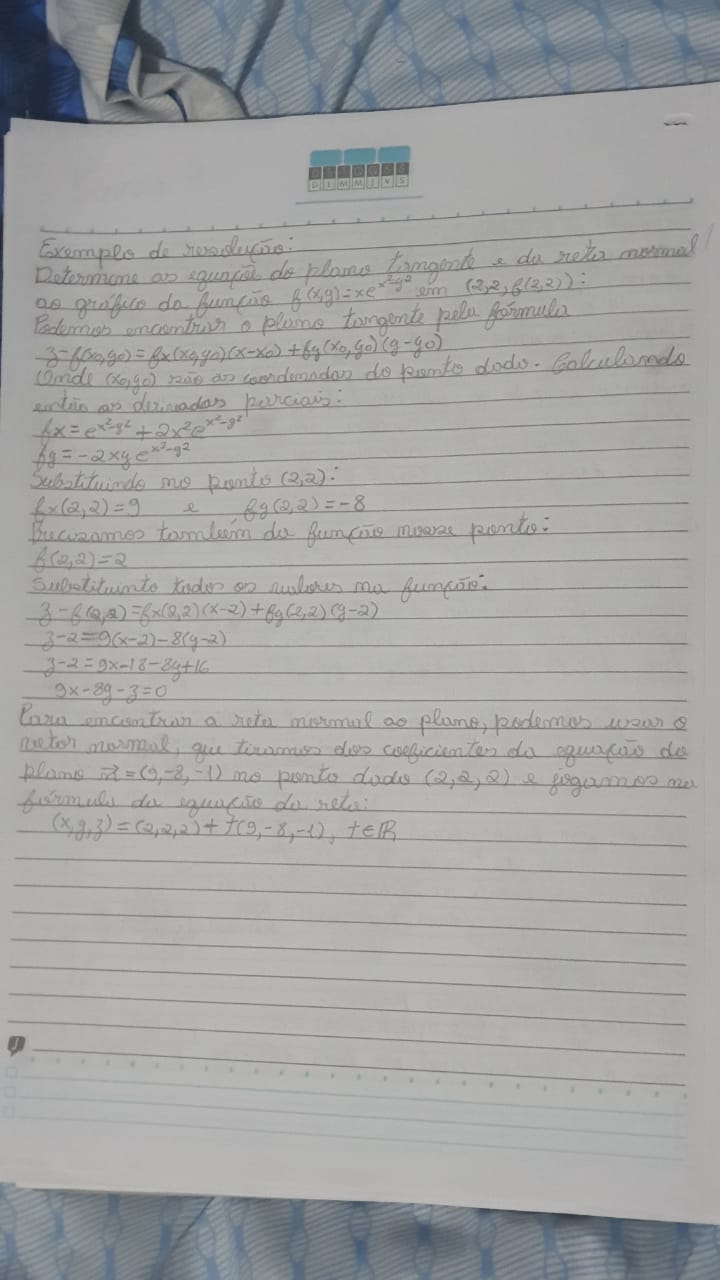 D S T Q Q S S
D L M M J V S
Exemplo de resolução:
Determine as equações do plano tangente e da reta normal
ao gráfico da função f(x,y)=xe^{x²-y²} em (2,2,f(2,2)):
Podemos encontrar o plano tangente pela fórmula
z-f(x₀,y₀)=fx(x₀,y₀)(x-x₀)+fy(x₀,y₀)(y-y₀)
Onde (x₀,y₀) são as coordenadas do ponto dado. Calculando
então as derivadas parciais:
fx=e^{x²-y²}+2x²e^{x²-y²}
fy=-2xye^{x²-y²}
Substituindo no ponto (2,2):
fx(2,2)=9 e fy(2,2)=-8
Precisamos também da função nesse ponto:
f(2,2)=2
Substituinto todos os valores na função:
z-f(2,2)=fx(2,2)(x-2)+fy(2,2)(y-2)
z-2=9(x-2)-8(y-2)
z-2=9x-18-8y+16
9x-8y-z=0
Para encontrar a reta normal ao plano, podemos usar o
vetor normal, que tiramos dos coeficientes da equação do
plano n⃗=(9,-8,-1) no ponto dado (2,2,2) e jogamos na
fórmula da equação da reta:
(x,y,z)=(2,2,2)+t(9,-8,-1), t∈ℝ
J